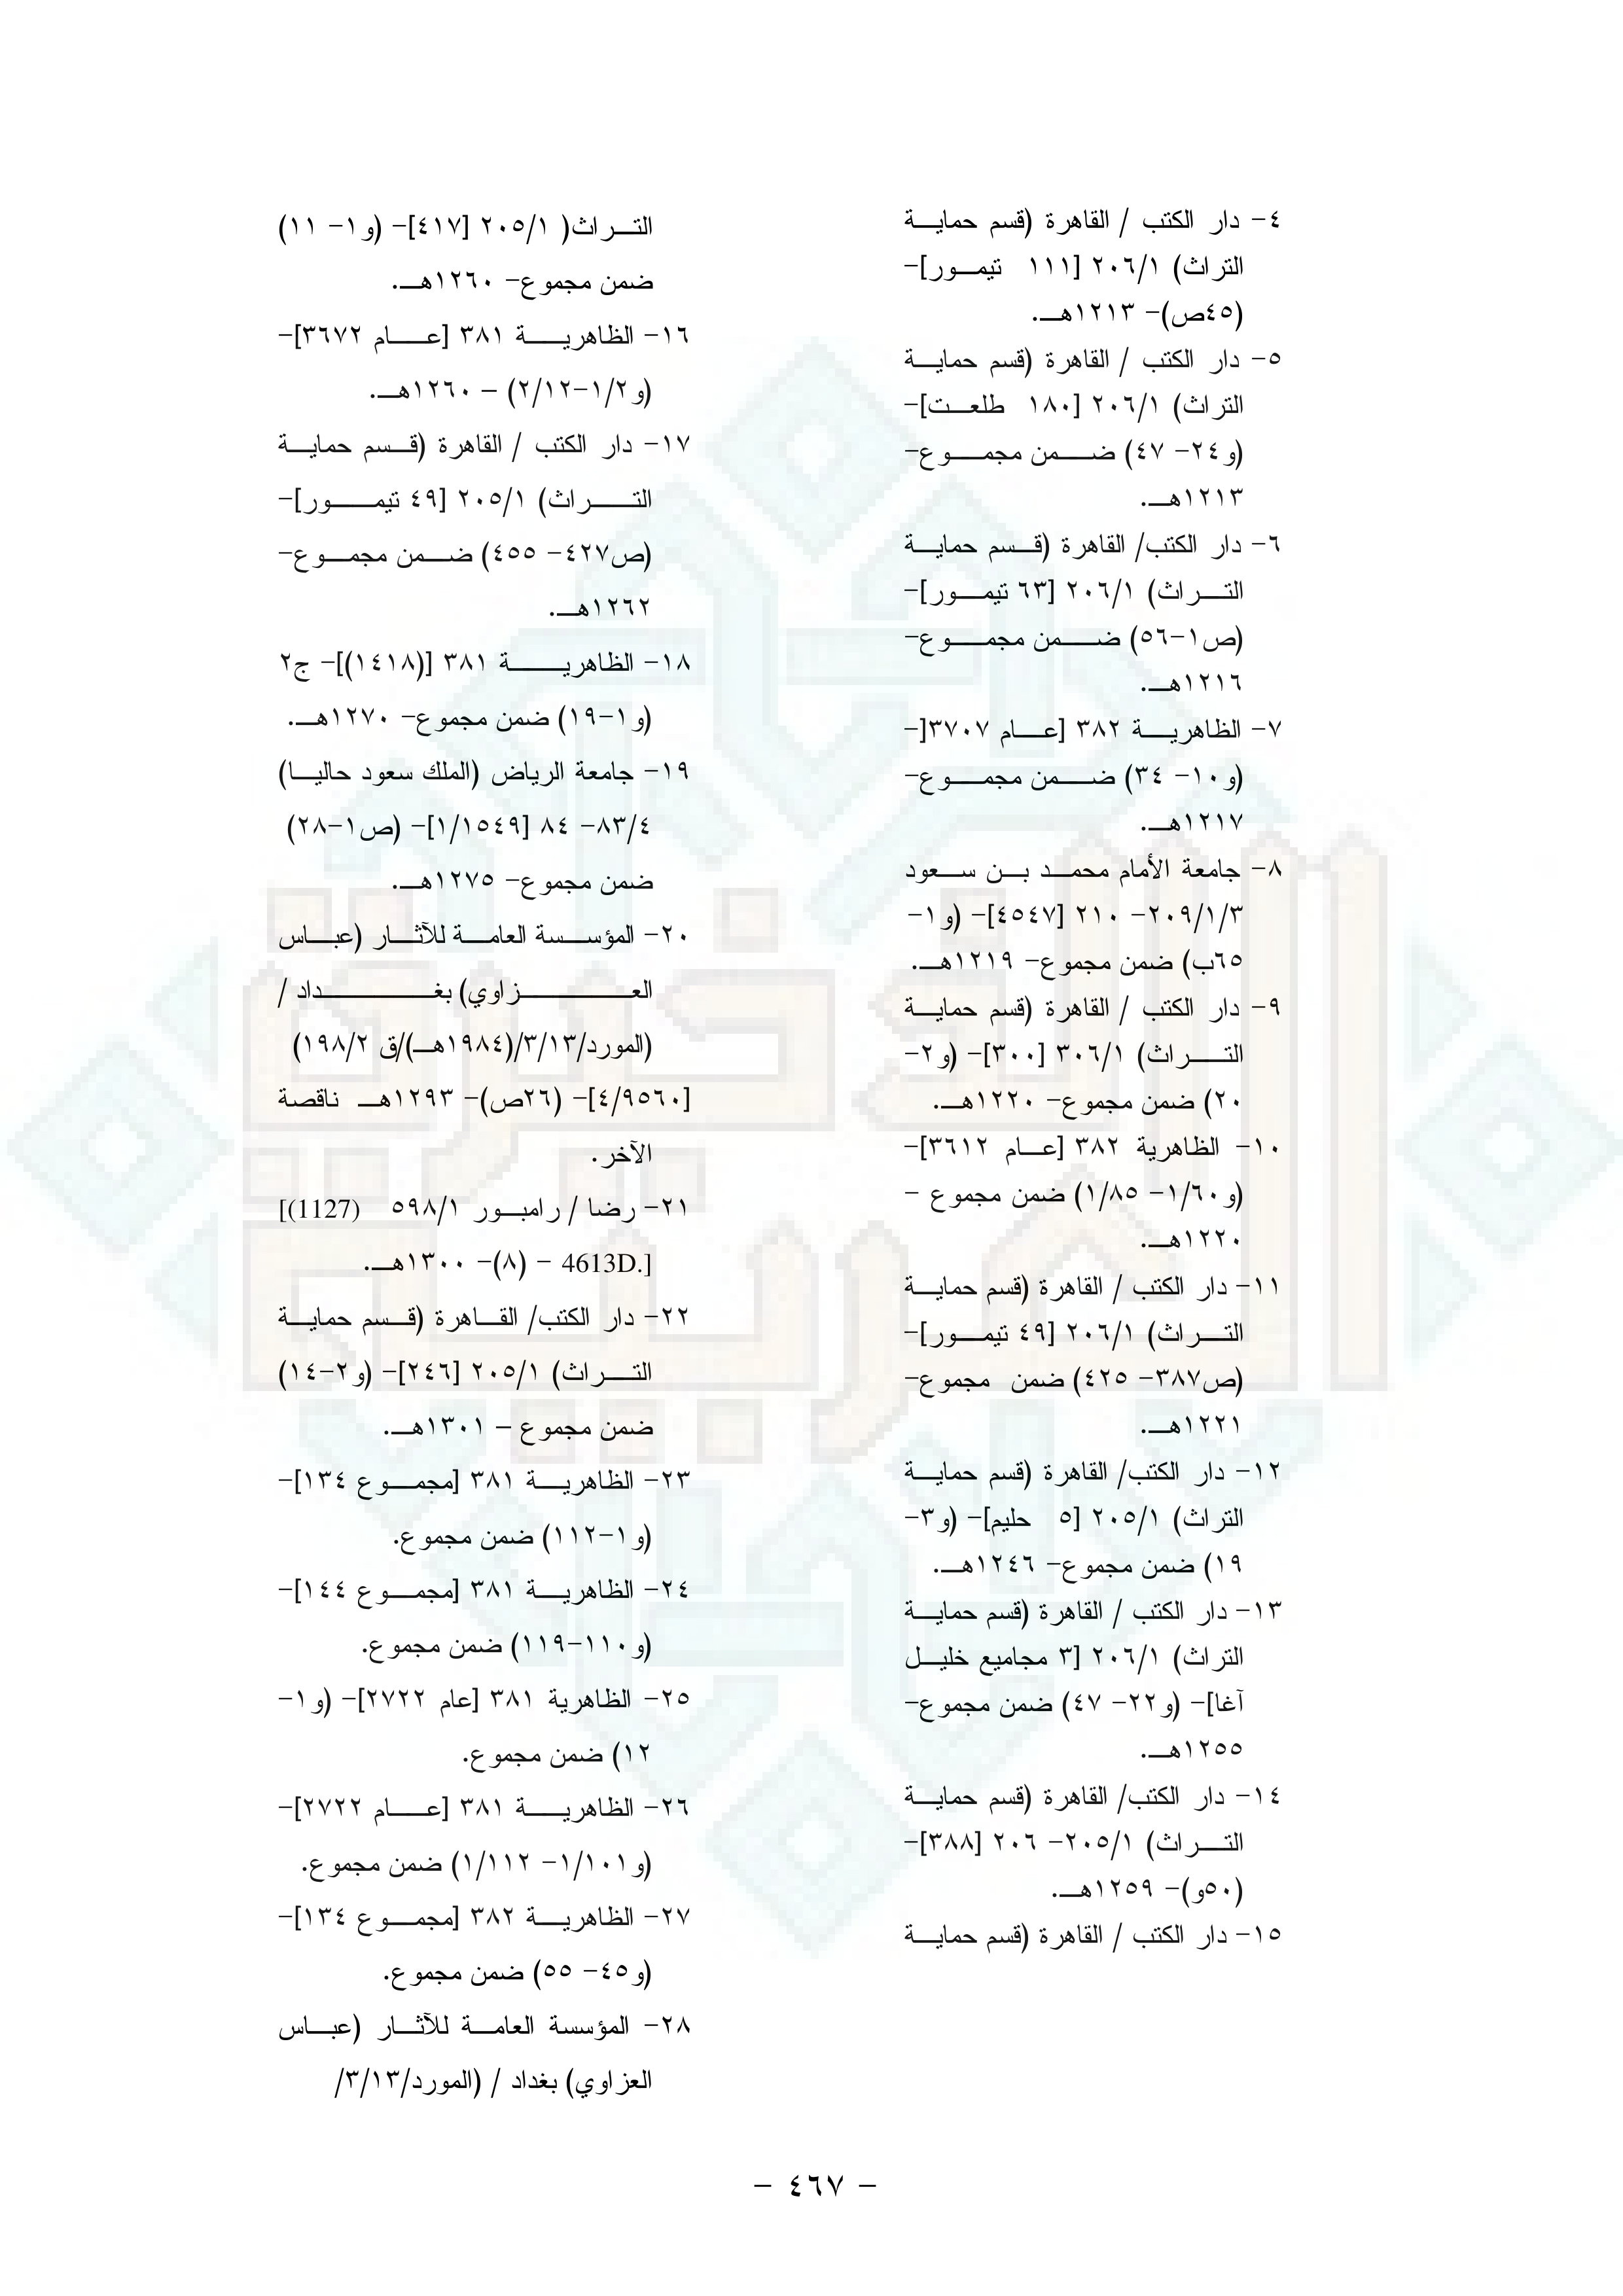 ٤- دار الكتب / القاهرة (قسم حماية
التراث) ٢٠٦/١ [١١١ تيمور]-
(٤٥ص)- ١٢١٣هـ.
٥- دار الكتب / القاهرة (قسم حماية
التراث) ٢٠٦/١ [١٨٠ طلعت]-
(و٢٤- ٤٧) ضمن مجموع-
١٢١٣هـ.
٦- دار الكتب/ القاهرة (قسم حماية
التراث) ٢٠٦/١ [٦٣ تيمور]-
(ص١-٥٦) ضمن مجموع-
١٢١٦هـ.
٧- الظاهرية ٣٨٢ [عام ٣٧٠٧[-
(و١٠- ٣٤) ضمن مجموع-
١٢١٧هـ.
٨- جامعة الأمام محمد بن سعود
٢٠٩/١/٣- ٢١٠ [٤٥٤٧]- (و١-
٦٥ب) ضمن مجموع- ١٢١٩هـ.
٩- دار الكتب / القاهرة (قسم حماية
التراث) ٣٠٦/١ [٣٠٠]- (و٢-
٢٠) ضمن مجموع- ١٢٢٠هـ.
١٠- الظاهرية ٣٨٢ [عام ٣٦١٢]-
(و١/٦٠- ١/٨٥) ضمن مجموع -
١٢٢٠هـ.
١١- دار الكتب / القاهرة (قسم حماية
التراث) ٢٠٦/١ [٤٩ تيمور]-
(ص٣٨٧- ٤٢٥) ضمن مجموع-
١٢٢١هـ.
١٢- دار الكتب/ القاهرة (قسم حماية
التراث) ٢٠٥/١ [٥ حليم]- (و٣-
١٩) ضمن مجموع- ١٢٤٦هـ.
١٣- دار الكتب / القاهرة (قسم حماية
التراث) ٢٠٦/١ [٣ مجاميع خليل
آغا]- (و٢٢- ٤٧) ضمن مجموع-
١٢٥٥هـ.
١٤- دار الكتب/ القاهرة (قسم حماية
التراث) ٢٠٥/١- ٢٠٦ [٣٨٨]-
(٥٠و)- ١٢٥٩هـ.
١٥- دار الكتب / القاهرة (قسم حماية
التراث( ٢٠٥/١ [٤١٧]- (و١- ١١)
ضمن مجموع- ١٢٦٠هـ.
١٦- الظاهرية ٣٨١ [عام ٣٦٧٢]-
(و١/٢-٢/١٢) – ١٢٦٠هـ.
١٧- دار الكتب / القاهرة (قسم حماية
التراث) ٢٠٥/١ [٤٩ تيمور]-
(ص٤٢٧- ٤٥٥) ضمن مجموع-
١٢٦٢هـ.
١٨- الظاهرية ٣٨١ [(١٤١٨)]- ج٢
(و١-١٩) ضمن مجموع- ١٢٧٠هـ.
١٩- جامعة الرياض (الملك سعود حاليا)
٨٣/٤- ٨٤ [١/١٥٤٩]- (ص١-٢٨)
ضمن مجموع- ١٢٧٥هـ.
٢٠- المؤسسة العامة للآثار (عباس
العزاوي) بغداد /
(المورد/٣/١٣/(١٩٨٤هـ)/ق ١٩٨/٢)
[٤/٩٥٦٠]- (٢٦ص)- ١٢٩٣هـ ناقصة
الآخر.
٢١- رضا / رامبور ٥٩٨/١ (1127)]
[.4613D – (٨)- ١٣٠٠هـ.
٢٢- دار الكتب/ القاهرة (قسم حماية
التراث) ٢٠٥/١ [٢٤٦]- (و٢-١٤)
ضمن مجموع – ١٣٠١هـ.
٢٣- الظاهرية ٣٨١ [مجموع ١٣٤]-
(و١-١١٢) ضمن مجموع.
٢٤- الظاهرية ٣٨١ [مجموع ١٤٤]-
(و١١٠-١١٩) ضمن مجموع.
٢٥- الظاهرية ٣٨١ [عام ٢٧٢٢]- (و١-
١٢) ضمن مجموع.
٢٦- الظاهرية ٣٨١ [عام ٢٧٢٢]-
(و١/١٠١- ١/١١٢) ضمن مجموع.
٢٧- الظاهرية ٣٨٢ [مجموع ١٣٤]-
(و٤٥- ٥٥) ضمن مجموع.
٢٨- المؤسسة العامة للآثار (عباس
العزاوي) بغداد / (المورد/٣/١٣/
- ٤٦٧ -